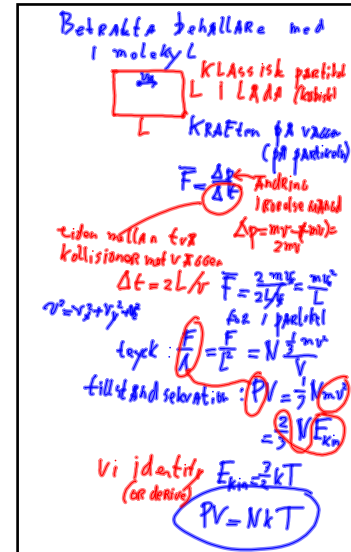 Betrakta behållare med
1 molekyl
v_x
L
KLASSisk partikel
i LÅDA (kubisk)
L
KRAften på väggen
(på partikeln)
F̅ = Δp/Δt
ändring
i rörelsemängd
Δp = mv-(-mv) =
2mv
tiden mellan två
kollisioner mot väggen
Δt = 2L/v
F̅ = 2mv_x/(2L/v_x) = mv_x²/L
för 1 partikel
v² = v_x²+v_y²+v_z²
tryck : F/A = F/L² = N (1/3 mv²)/V
tillståndsekvation : PV = 1/3 Nmv²
= 2/3 N E_kin
Vi identify
(OR derive)
E_kin = 3/2 kT
PV = NkT